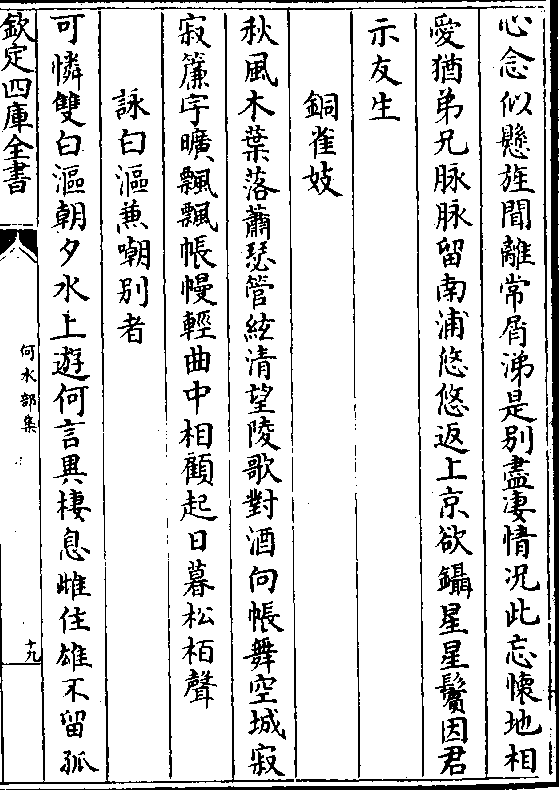 心念似懸旌聞離常屑涕是别盡淒情况此忘懷地相
愛猶弟兄脉脉留南浦悠悠返上京欲鑷星星鬢因君
示友生
銅雀妓
秋風木葉落蕭瑟管絃清望陵歌對酒向帳舞空城寂
寂簷宇曠飄飄帳幔輕曲中相顧起日暮松栢聲
詠白漚兼嘲别者
可憐雙白漚朝夕水上遊何言異棲息雌住雄不留孤
欽定四庫全書
何水部集
十九